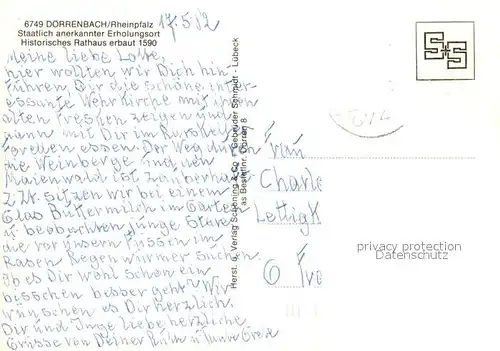 6749 DÖRRENBACH/Rheinpfalz
Staatlich anerkannter Erholungsort
Historisches Rathaus erbaut 1590
17.5.82
Meine liebe Lotte,
hier wollten wir Dich hin
führen, Dir die schöne inter-
essante Wehrkirche mit ihren
alten Fresken zeigen und
dann mit Dir im
Forellen essen. Der Weg durch
die Weinberge und den
Maienwald ist zauberhaft.
z. Zt. sitzen wir bei einem
Glas Buttermilch im Garten
u. beobachten junge Stare
die vor unsern Füssen im
Rasen Regenwürmer suchen.
Ob es Dir wohl schon ein
bisschen besser geht? Wir
wünschen es Dir herzlich.
Dir und Inge liebe herzliche
Grüsse von Deiner Ruth u. Tante Grete
Herst. u. Verlag Schöning & Co. + Gebrüder Schmidt - Lübeck
as Bestellnr. Dorren 8
Frau
Charlo
Lettigk
6 Fra
privacy protection
Datenschutz